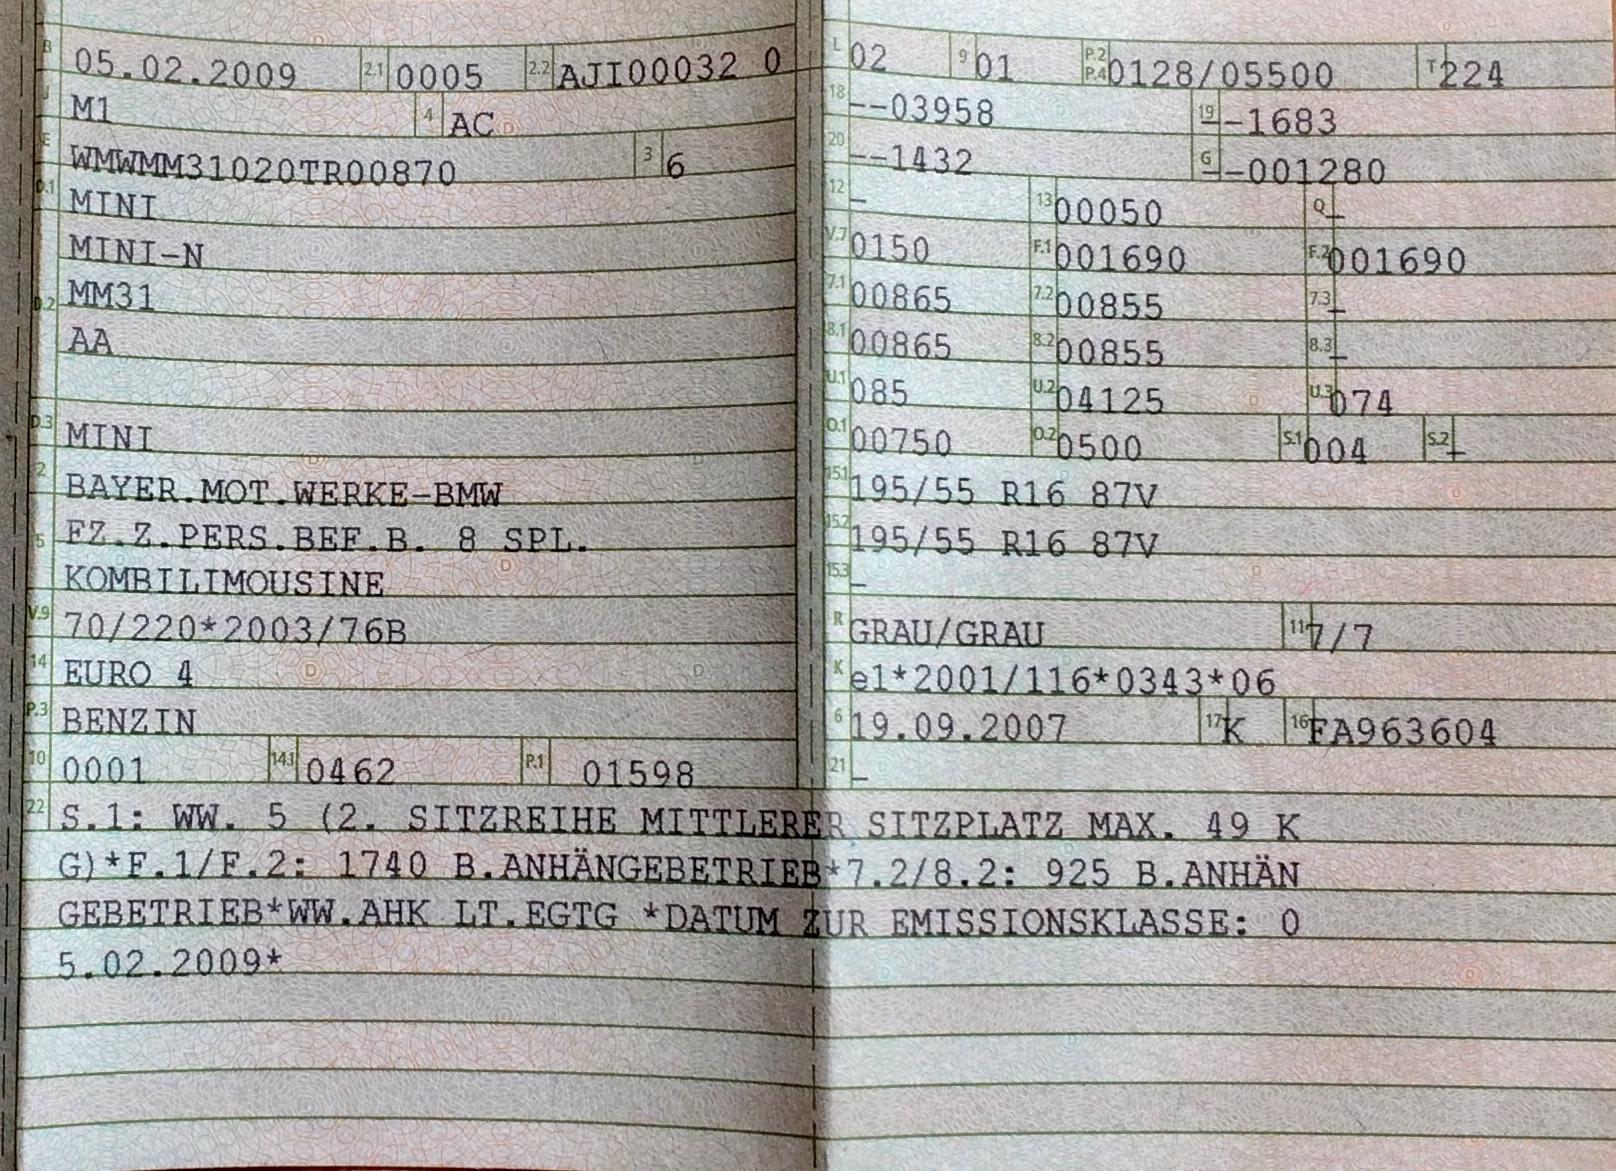 B 05.02.2009 2.1 0005 2.2 AJI00032 0
J M1 4 AC
E WMWMM31020TR00870 3 6
D.1 MINI
MINI-N
D.2 MM31
AA
D.3 MINI
2 BAYER.MOT.WERKE-BMW
5 FZ.Z.PERS.BEF.B. 8 SPL.
KOMBILIMOUSINE
V.9 70/220*2003/76B
14 EURO 4
P.3 BENZIN
10 0001 14.1 0462 P.1 01598
L 02 9 01 P.2 P.4 0128/05500 T 224
18 --03958 19 --1683
20 --1432 G --001280
12 - 13 00050 Q -
V.7 0150 F.1 001690 F.2 001690
7.1 00865 7.2 00855 7.3 -
8.1 00865 8.2 00855 8.3 -
U.1 085 U.2 04125 U.3 074
O.1 00750 O.2 0500 S.1 004 S.2 -
15.1 195/55 R16 87V
15.2 195/55 R16 87V
15.3 -
R GRAU/GRAU 11 7/7
K e1*2001/116*0343*06
6 19.09.2007 17 K 16 FA963604
21 -
22 S.1: WW. 5 (2. SITZREIHE MITTLERER SITZPLATZ MAX. 49 K
G)*F.1/F.2: 1740 B.ANHÄNGEBETRIEB*7.2/8.2: 925 B.ANHÄN
GEBETRIEB*WW.AHK LT.EGTG *DATUM ZUR EMISSIONSKLASSE: 0
5.02.2009*